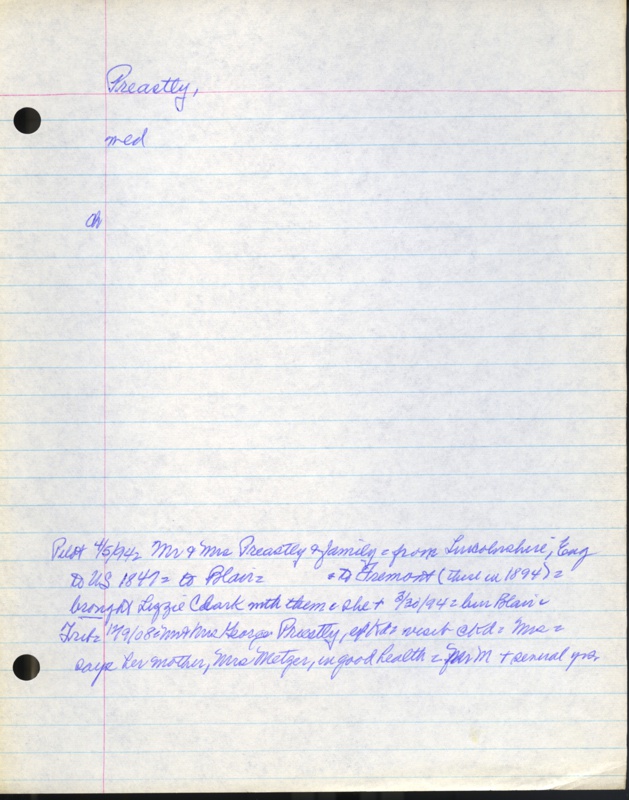 Preastly,
med
ch
Pilot 4/5/94 = Mr & Mrs Preastly & family = from Lincolnshire, Eng
to US 1847 = to Blair = + to Fremont (there in 1894) =
brought Lizzie Clark with them & she + 3/30/94 = bur Blair
Trib = Mr & Mrs George Priestly, = visit = Mrs =
says her mother, Mrs Metzger, in good health = M + several yrs.